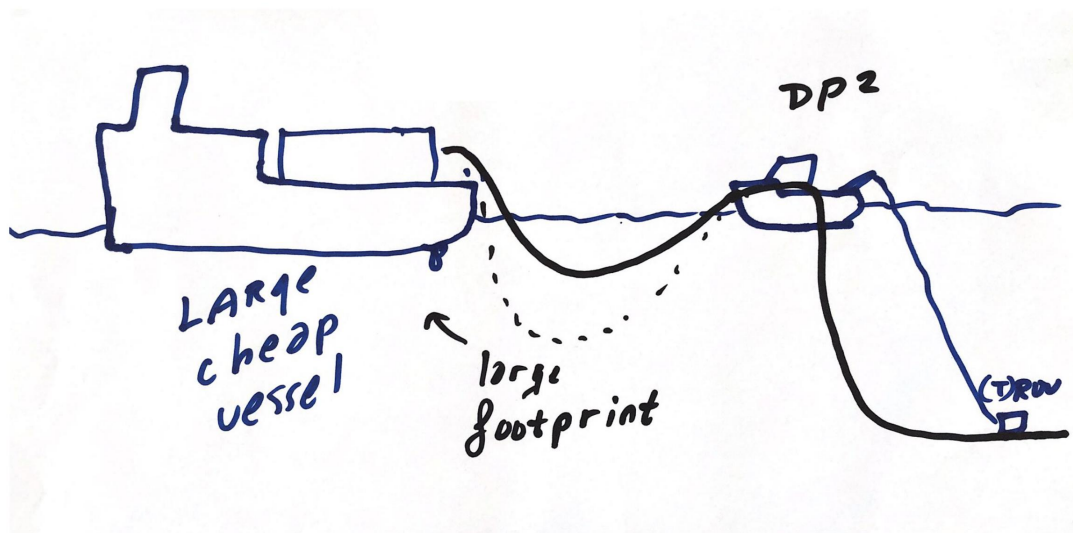 DP2
LARge
cheap
vessel
large
footprint
(T)ROV